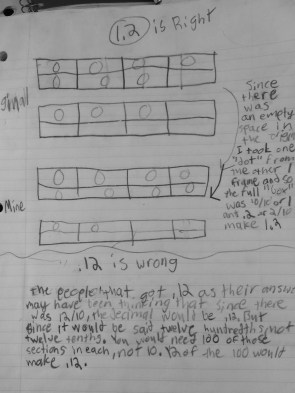 1.2 is Right
Since
there
was
an empty
space in
the
I took one
"dot" from
the other
frame and so
the full
was 10/10 or 1
and .2 or 2/10
make 1.2
Mine
.12 is wrong
The people that got .12 as their answer
may have been thinking that since there
was 12/10, the decimal would be .12. But
since it would be said twelve hundredths, not
twelve tenths. You would need 100 of those
sections in each, not 10. 12 of the 100 would
make .12.